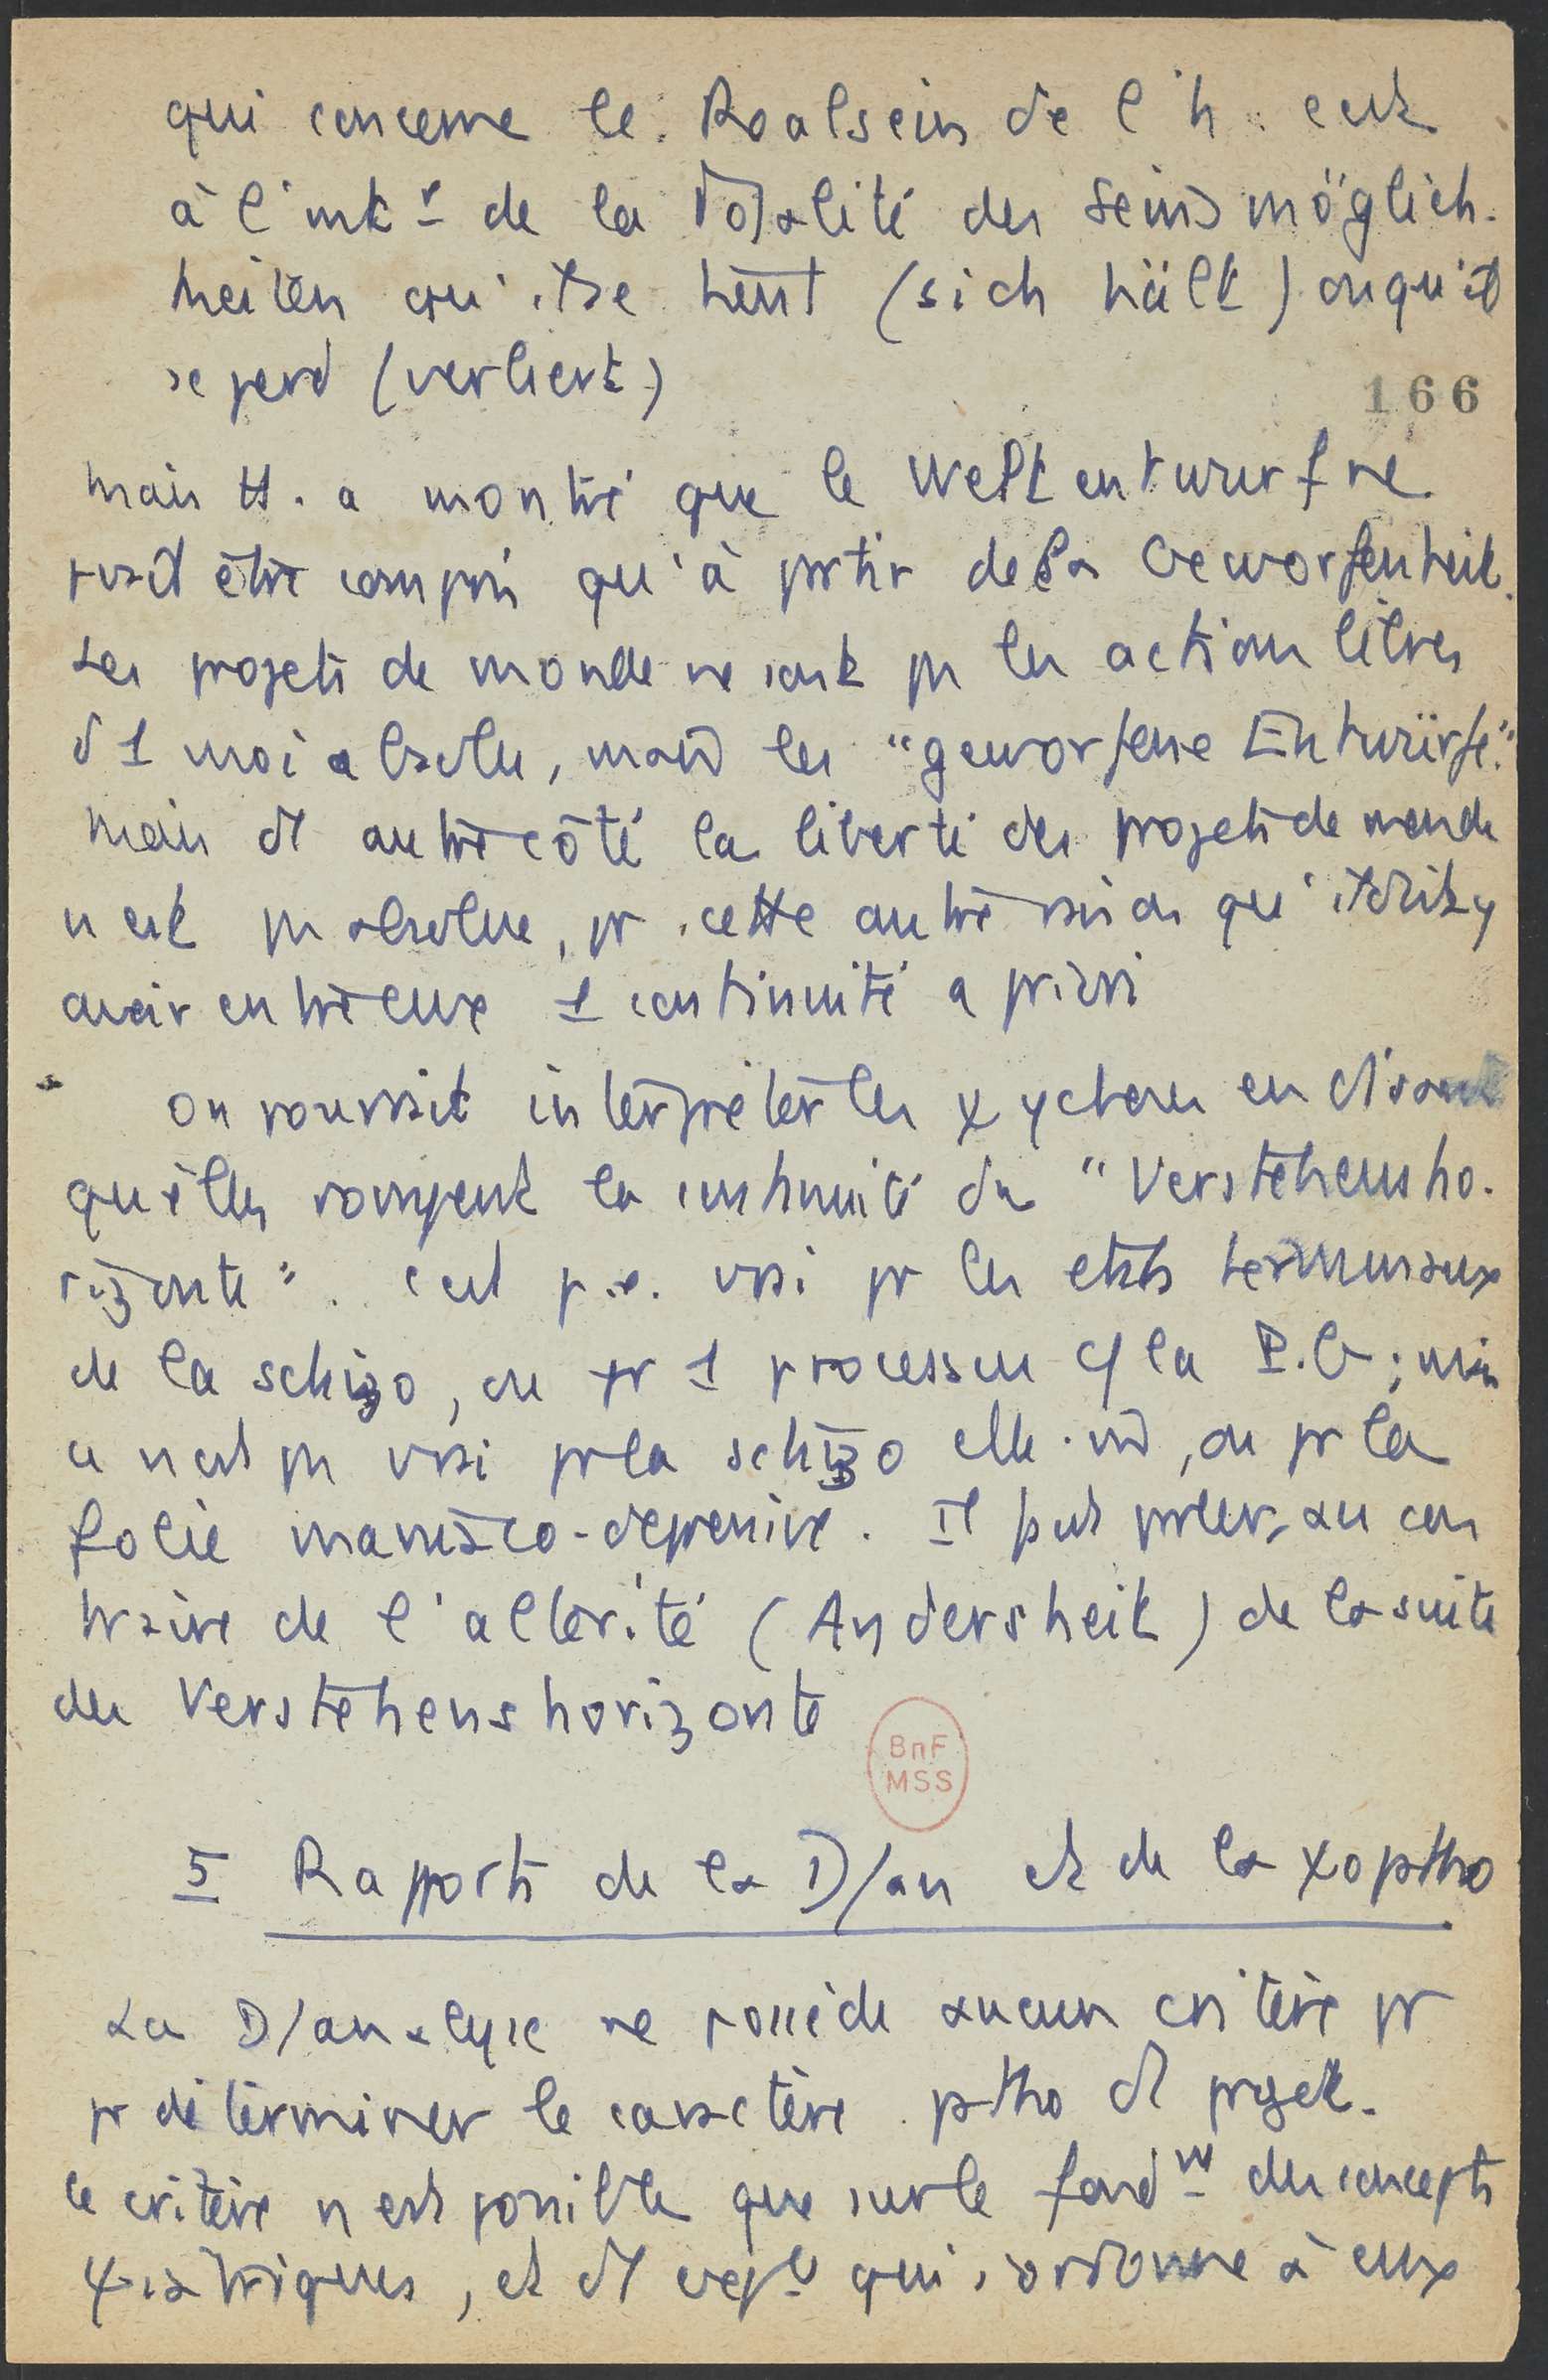 qui concerne le Realsein de l'h. c'est
à l'intr de la totalité des Seinsmöglich-
keiten qu'il se tient (sich hält) ou qu'il
se perd (verliert)
166
mais H. a montré que le Weltentwurf ne
peut être compris qu'à partir de la Geworfenheit.
Les projets de monde ne sont pas les actions libres
d'1 moi absolu, mais les "geworfene Entwürfe".
Mais d'1 autre côté la liberté des projets de monde
n'est pas absolue, pr cette autre raison qu'il doit y
avoir entre eux 1 continuité a priori
On pourrait interpréter les ψychoses en disant
qu'elles rompent la continuité du "Verstehensho-
rizonte". C'est p.e. vrai pr les états terminaux
de la schizo, ou pr 1 processus c/ la P.G.; mais
ce n'est pas vrai pr la schizo elle-m̂, ou pr la
folie maniaco-dépressive. Il faut parler au con
traire de l'altérité (Andersheit) de la suite
des Verstehenshorizonte
BnF
MSS
5 Rapports de la D/an et de la ψoptho
La D/analyse ne possède aucun critère pr
pr déterminer le caractère ptho d'1 projet.
Ce critère n'est possible que sur le fondm des concepts
ψiatriques, et d'1 expl qui s'ordonne à eux